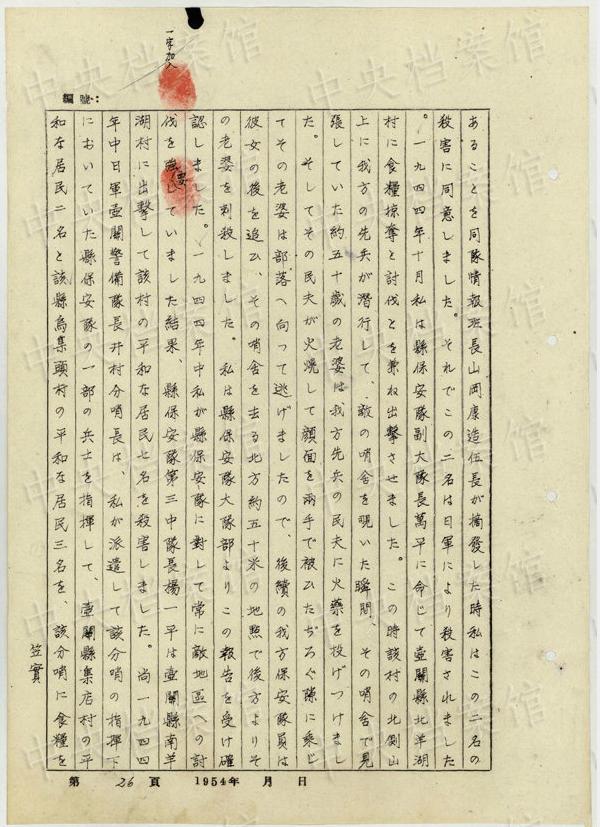 一字加入
編號：
あることを同隊情報班長山岡康造伍長が摘發した時私はこの二名の
殺害に同意しました。それでこの二名は日軍により殺害されました
。一九四四年十月私は縣保安隊副大隊長萬平に命じて壺關縣北羊湖
村に食糧掠奪と討伐とを兼ね出擊させました。この時該村の北側山
上に我方の先兵が潛行して、敵の哨舍を覗いた瞬間、その哨舍で見
張していた約五十歲の老婆は我方先兵の民夫に火藥を投げつけまし
た。そしてその民夫が火燒して顏面を兩手で被ひたぢろぐ隙に乘じ
てその老婆は部落へ向って逃げましたので、後續の我方保安隊員は
彼女の後を追ひ、その哨舍を去る北方約五十米の地點で後方よりそ
の老婆を刺殺しました。私は縣保安隊大隊部よりこの報告を受け確
認しました。一九四四年中私が縣保安隊に對して常に敵地區への討
伐を強要していました結果、縣保安隊第三中隊長楊一平は壺關縣南羊
湖村に出擊して該村の平和な居民七名を殺害しました。尚一九四四
年中日軍壺關警備隊長井村分哨長は、私が派遣して該分哨の指揮下
においていた縣保安隊の一部の兵士を指揮して、壺關縣集店村の平
和な居民二名と該縣烏集頭村の平和な居民三名を、該分哨に食糧を
笠實
第 26 頁 1954年 月 日
中央档案馆